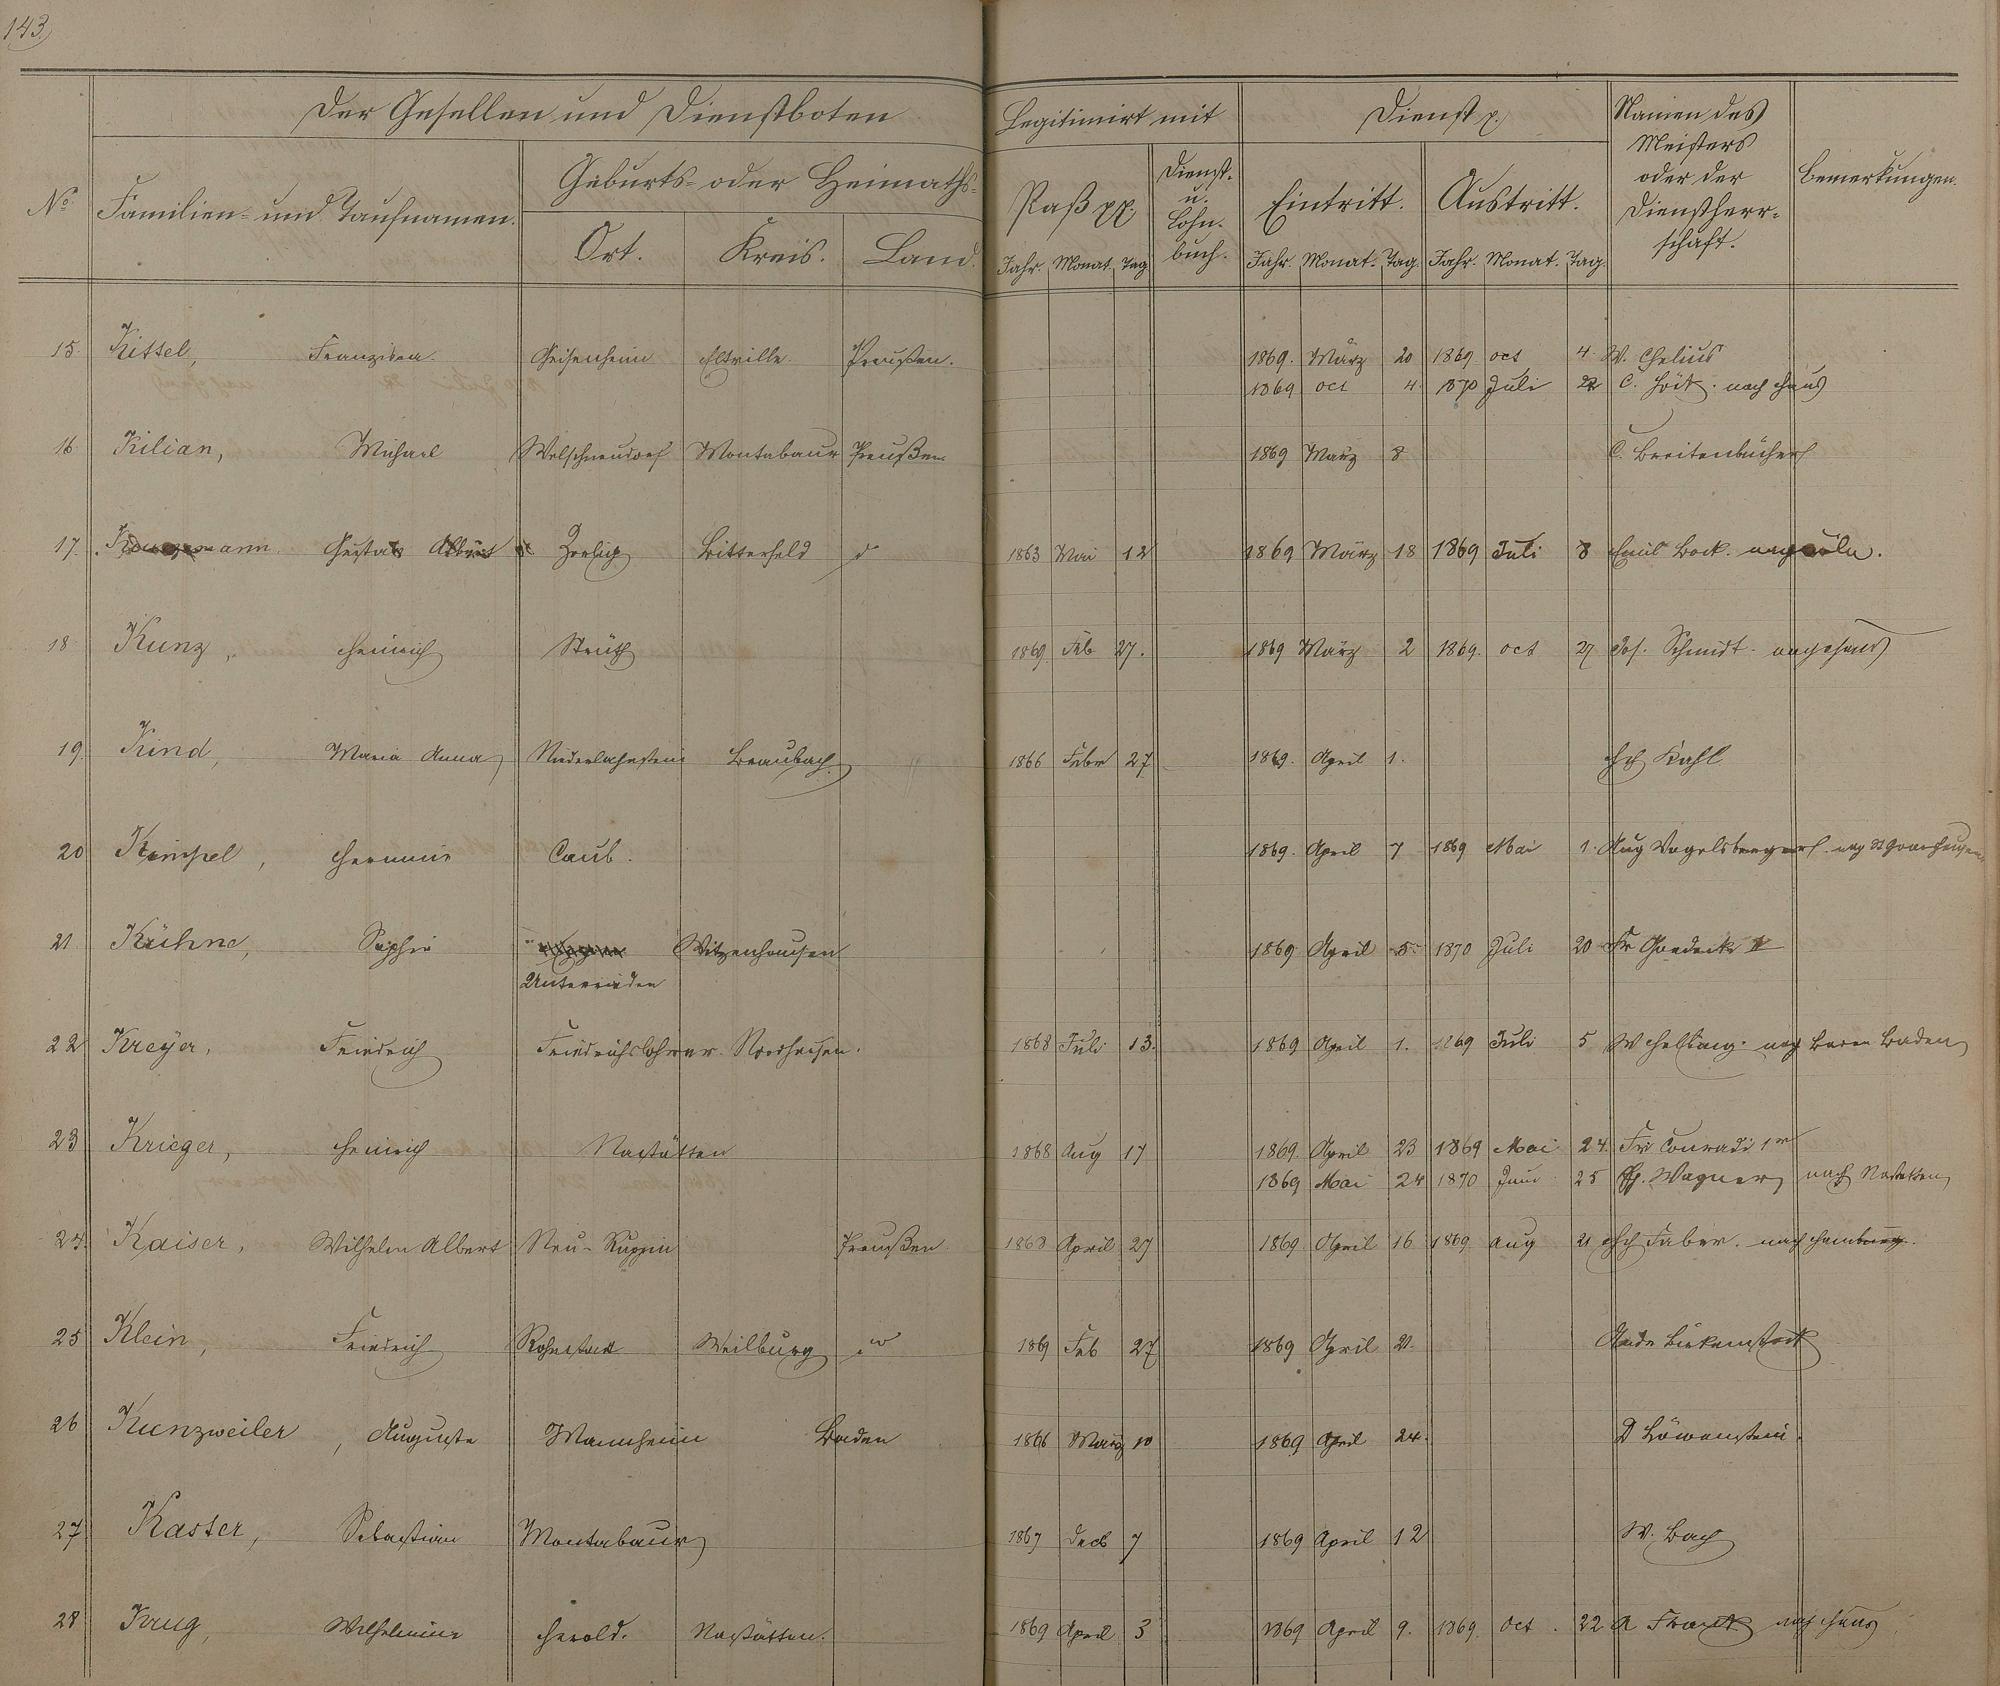 143.
Der Gesellen und Dienstboten
Legitimirt mit
Dienst p.
Namen des
Meisters
oder der
Dienstherr-
schaft.
Bemerkungen.
No.
Familien- und Taufnamen.
Geburts- oder Heimaths-
Ort. Kreis. Land.
Paß pp.
Dienst-
u.
Lohn-
buch.
Eintritt. Austritt.
Jahr. Monat. Tag Jahr. Monat. Tag. Jahr. Monat. Tag.
15. Kittel, Franziska Geisenheim Eltville Preußen. 1869. März 20 1869 oct 4. W. Chelius
1869 oct 4. 1870 Juli 22 C. nach Haus
16 Kilian, Michael Welschneudorf Montabaur Preußen 1869 März 8 C. Breitenbücher
17. Gustav Albert Zoerbig Bitterfeld d 1863 Mai 12 1869 März 18 1869 Juli 8 Emil Bock. nach Cöln.
18 Kunz, Heinrich Strüth 1869. Feb 27. 1869 März 2 1869. oct 27 Jos. Schmidt. nach Haus
19. Kind, Maria Anna Niederlahnstein Braubach 1866 Febr 27 1869. April 1. Hch Kahl
20 Kimpel, Hermine Caub. 1869. April 7 1869 Mai 1. Aug Vogelsberger. nach St Goarshausen
21 Kühne, Sophie Witzenhausen 1869 April 5. 1870 Juli 20 Fr Goedecke
Unterrieden
22 Kreyer, Friedrich Friedrichslohra Nordhausen. 1868 Juli 13. 1869 April 1. 1869 Juli 5 W nach Baden Baden
23 Krieger, Heinrich Nastätten 1868 Aug 17 1869. April 23 1869 Mai 24. Fr Conradi 1r
1869 Mai 24 1870 Juni 25 Ph. Wagner, nach Nastätten
24. Kaiser, Wilhelm Albert Neu-Ruppin Preußen 1863 April 27 1869. April 16 1869. aug 21 Hch Faber. nach Hamburg.
25 Klein, Friedrich Rohnstadt Weilburg do 1869 Feb 27 1869 April 21. Birkenstock
26 Kunzweiler, Auguste Mannheim Baden 1866 März 10 1869 April 24. D Löwenstein.
27 Kaster, Sebastian Montabaur 1867 Decb 7 1869 April 12 W. Bach
28 Krug, Wilhelmine Herold. Nastätten. 1869 April 3 1869 April 9. 1869. Oct. 22 A nach Haus